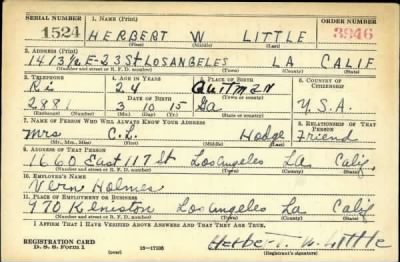 SERIAL NUMBER 1. NAME (Print) ORDER NUMBER
1524 HERBERT W LITTLE 3946
(First) (Middle) (Last)
2. ADDRESS (Print)
1413½ E-23 St LOS ANGELES LA CALIF.
(Number and street or R. F. D. number) (Town) (County) (State)
3. TELEPHONE 4. AGE IN YEARS 5. PLACE OF BIRTH 6. COUNTRY OF CITIZENSHIP
Ri 24 Quitman
(Town or county)
2881 DATE OF BIRTH Ga U.S.A.
3 10 15
(Mo.) (Day) (Yr.) (State or country)
7. NAME OF PERSON WHO WILL ALWAYS KNOW YOUR ADDRESS 8. RELATIONSHIP OF THAT PERSON
Mrs C. L. Hodge Friend
(Mr., Mrs., Miss) (First) (Middle) (Last)
9. ADDRESS OF THAT PERSON
1660 East 117 St Los Angeles La Calif,
(Number and street or R. F. D. number) (Town) (County) (State)
10. EMPLOYER'S NAME
Vern Holmes
11. PLACE OF EMPLOYMENT OR BUSINESS
970 Keniston Los Angeles La Calif
(Number and street or R. F. D. number) (Town) (County) (State)
I AFFIRM THAT I HAVE VERIFIED ABOVE ANSWERS AND THAT THEY ARE TRUE.
REGISTRATION CARD
D. S. S. Form 1 (over) Herbert W. Little
(Registrant's signature)